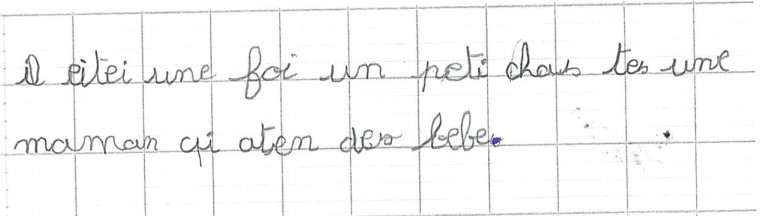 il eitei une foi un peti chas tes une
maman qi aten des bebe.